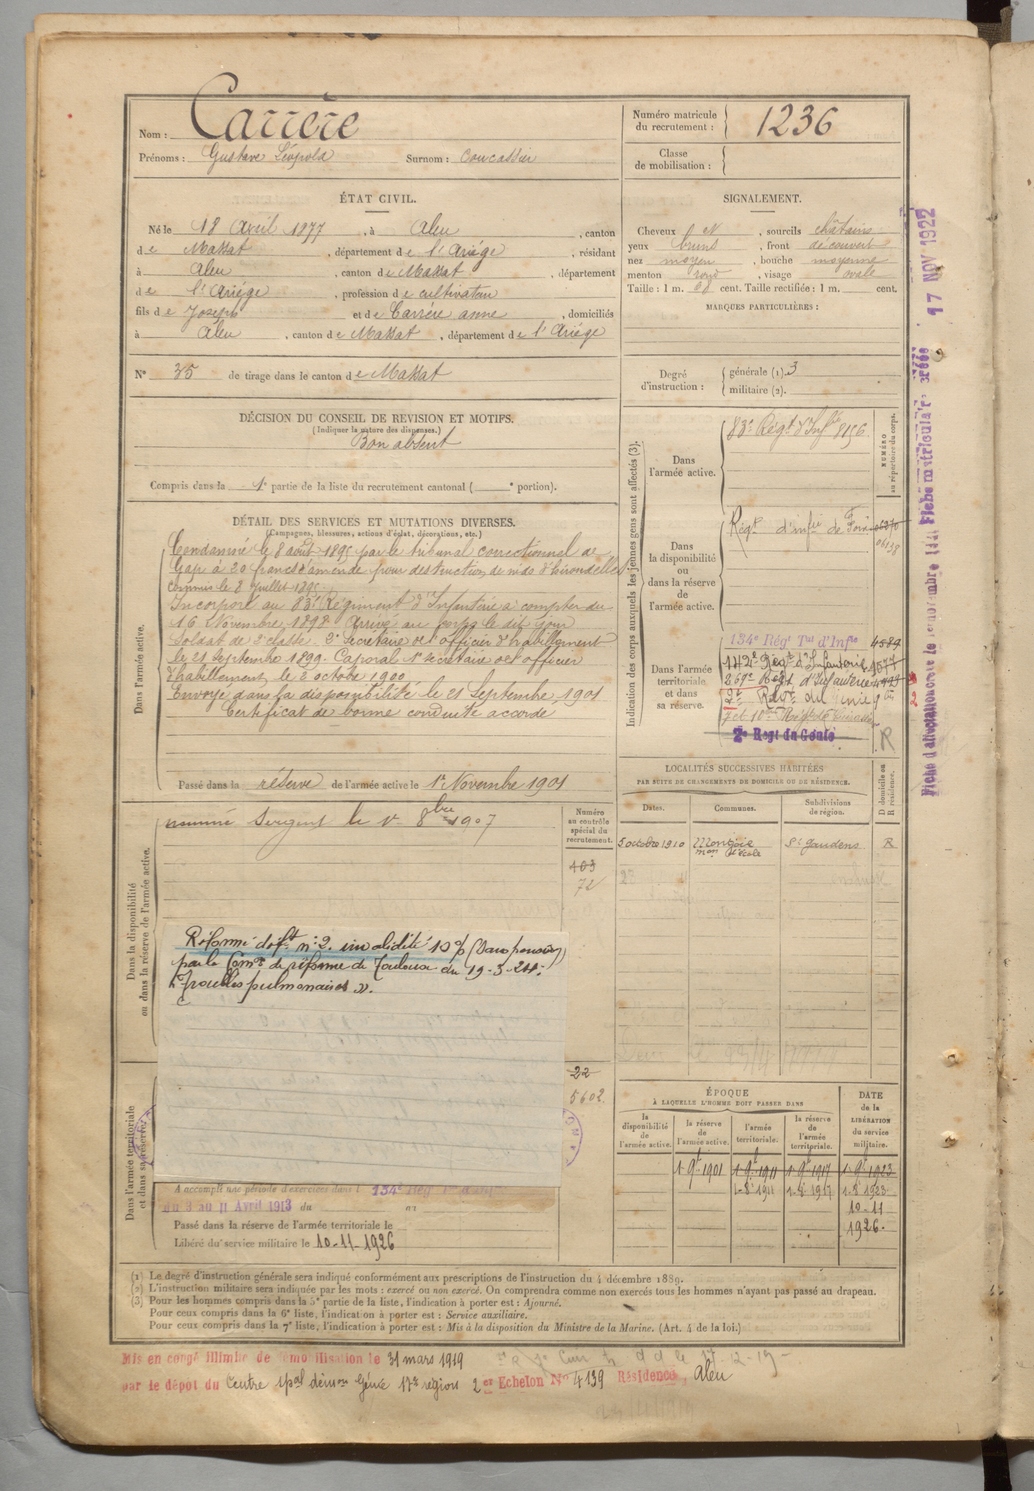 Nom : Carrère
Prénoms : Gustave Léopold Surnom : Coucassier
Numéro matricule du recrutement : 1236
Classe de mobilisation :
ÉTAT CIVIL.
Né le 18 Avril 1877, à Aleu, canton
de Massat, département de l'Ariège, résidant
à Aleu, canton de Massat, département
de l'Ariège, profession de cultivateur
fils de Joseph et de Carrère anne, domiciliés
à Aleu, canton de Massat, département de l'Ariège
N° 35 de tirage dans le canton de Massat
SIGNALEMENT.
Cheveux N, sourcils châtains
yeux bruns, front découvert
nez moyen, bouche moyenne
menton rond, visage ovale
Taille : 1 m. 68 cent. Taille rectifiée : 1 m. cent.
MARQUES PARTICULIÈRES :
Degré d'instruction : générale (1). 3
militaire (2).
DÉCISION DU CONSEIL DE REVISION ET MOTIFS.
(Indiquer la nature des dispenses.)
Bon absent
Compris dans la 1e partie de la liste du recrutement cantonal ( e portion).
DÉTAIL DES SERVICES ET MUTATIONS DIVERSES.
(Campagnes, blessures, actions d'éclat, décorations, etc.)
Dans l'armée active.
Condamné le 8 août 1895 par le tribunal correctionnel de
Gap à 20 francs d'amende pour destruction de nids d'hirondelles
commis le 8 Juillet 1895.
Incorporé au 83e Régiment d'Infanterie à compter du
16 Novembre 1898 Arrivé au corps le dit jour
Soldat de 2e classe. 3e Secrétaire de l'officier d'habillement
le 21 Septembre 1899. Caporal 1er Secrétaire de l'officier
d'habillement, le 2 octobre 1900
Envoyé dans la disponibilité le 21 Septembre 1901
Certificat de bonne conduite accordé
Passé dans la réserve de l'armée active le 1er Novembre 1901
Indication des corps auxquels les jeunes gens sont affectés (3).
NUMÉRO au répertoire du corps.
Dans l'armée active.
83e Régt d'Infie 8156
Dans la disponibilité ou dans la réserve de l'armée active.
Régt d'infie de Foix
Dans l'armée territoriale et dans sa réserve.
134e Régt Tal d'Infie 4589
142e Régt d'Infanterie
269e Régt d'Infanterie
2e Régt du Génie
2e Regt du Génie
R
Dans la disponibilité ou dans la réserve de l'armée active.
nommé Sergent le 1er 8bre 1907
Numéro au contrôle spécial du recrutement.
403
72
Réformé déft n° 2. invalidité 10 % (sans pension)
par la Comon de réforme de Toulouse du 19-3-24.
Troubles pulmonaires
22
5602
LOCALITÉS SUCCESSIVES HABITÉES
PAR SUITE DE CHANGEMENTS DE DOMICILE OU DE RÉSIDENCE.
Dates. Communes. Subdivisions de région. D domicile ou R résidence.
5 octobre 1910 Montjoie mon d'école St Gaudens R
Dans l'armée territoriale et dans sa réserve.
A accompli une période d'exercices dans l 134e Régt Tal d'Infie
du 3 au 11 Avril 1913 du au
Passé dans la réserve de l'armée territoriale le
Libéré du service militaire le 10-11-1926
ÉPOQUE
À LAQUELLE L'HOMME DOIT PASSER DANS
DATE de la LIBÉRATION du service militaire.
la disponibilité de l'armée active. la réserve de l'armée active. l'armée territoriale. la réserve de l'armée territoriale.
1-9bre 1901 1-9bre 1911 1-9bre 1917 1-9bre 1923
1-8 1911 1-8 1917 1-8 1923
10-11
1926.
(1) Le degré d'instruction générale sera indiqué conformément aux prescriptions de l'instruction du 4 décembre 1889.
(2) L'instruction militaire sera indiquée par les mots : exercé ou non exercé. On comprendra comme non exercés tous les hommes n'ayant pas passé au drapeau.
(3) Pour les hommes compris dans la 5e partie de la liste, l'indication à porter est : Ajourné.
Pour ceux compris dans la 6e liste, l'indication à porter est : Service auxiliaire.
Pour ceux compris dans la 7e liste, l'indication à porter est : Mis à la disposition du Ministre de la Marine. (Art. 4 de la loi.)
Mis en congé illimité de démobilisation le 31 mars 1919
par le dépôt du Centre Ipal démon Génie 17e région 2e Echelon N° 4139 Résidence, Aleu
17 NOV 1922